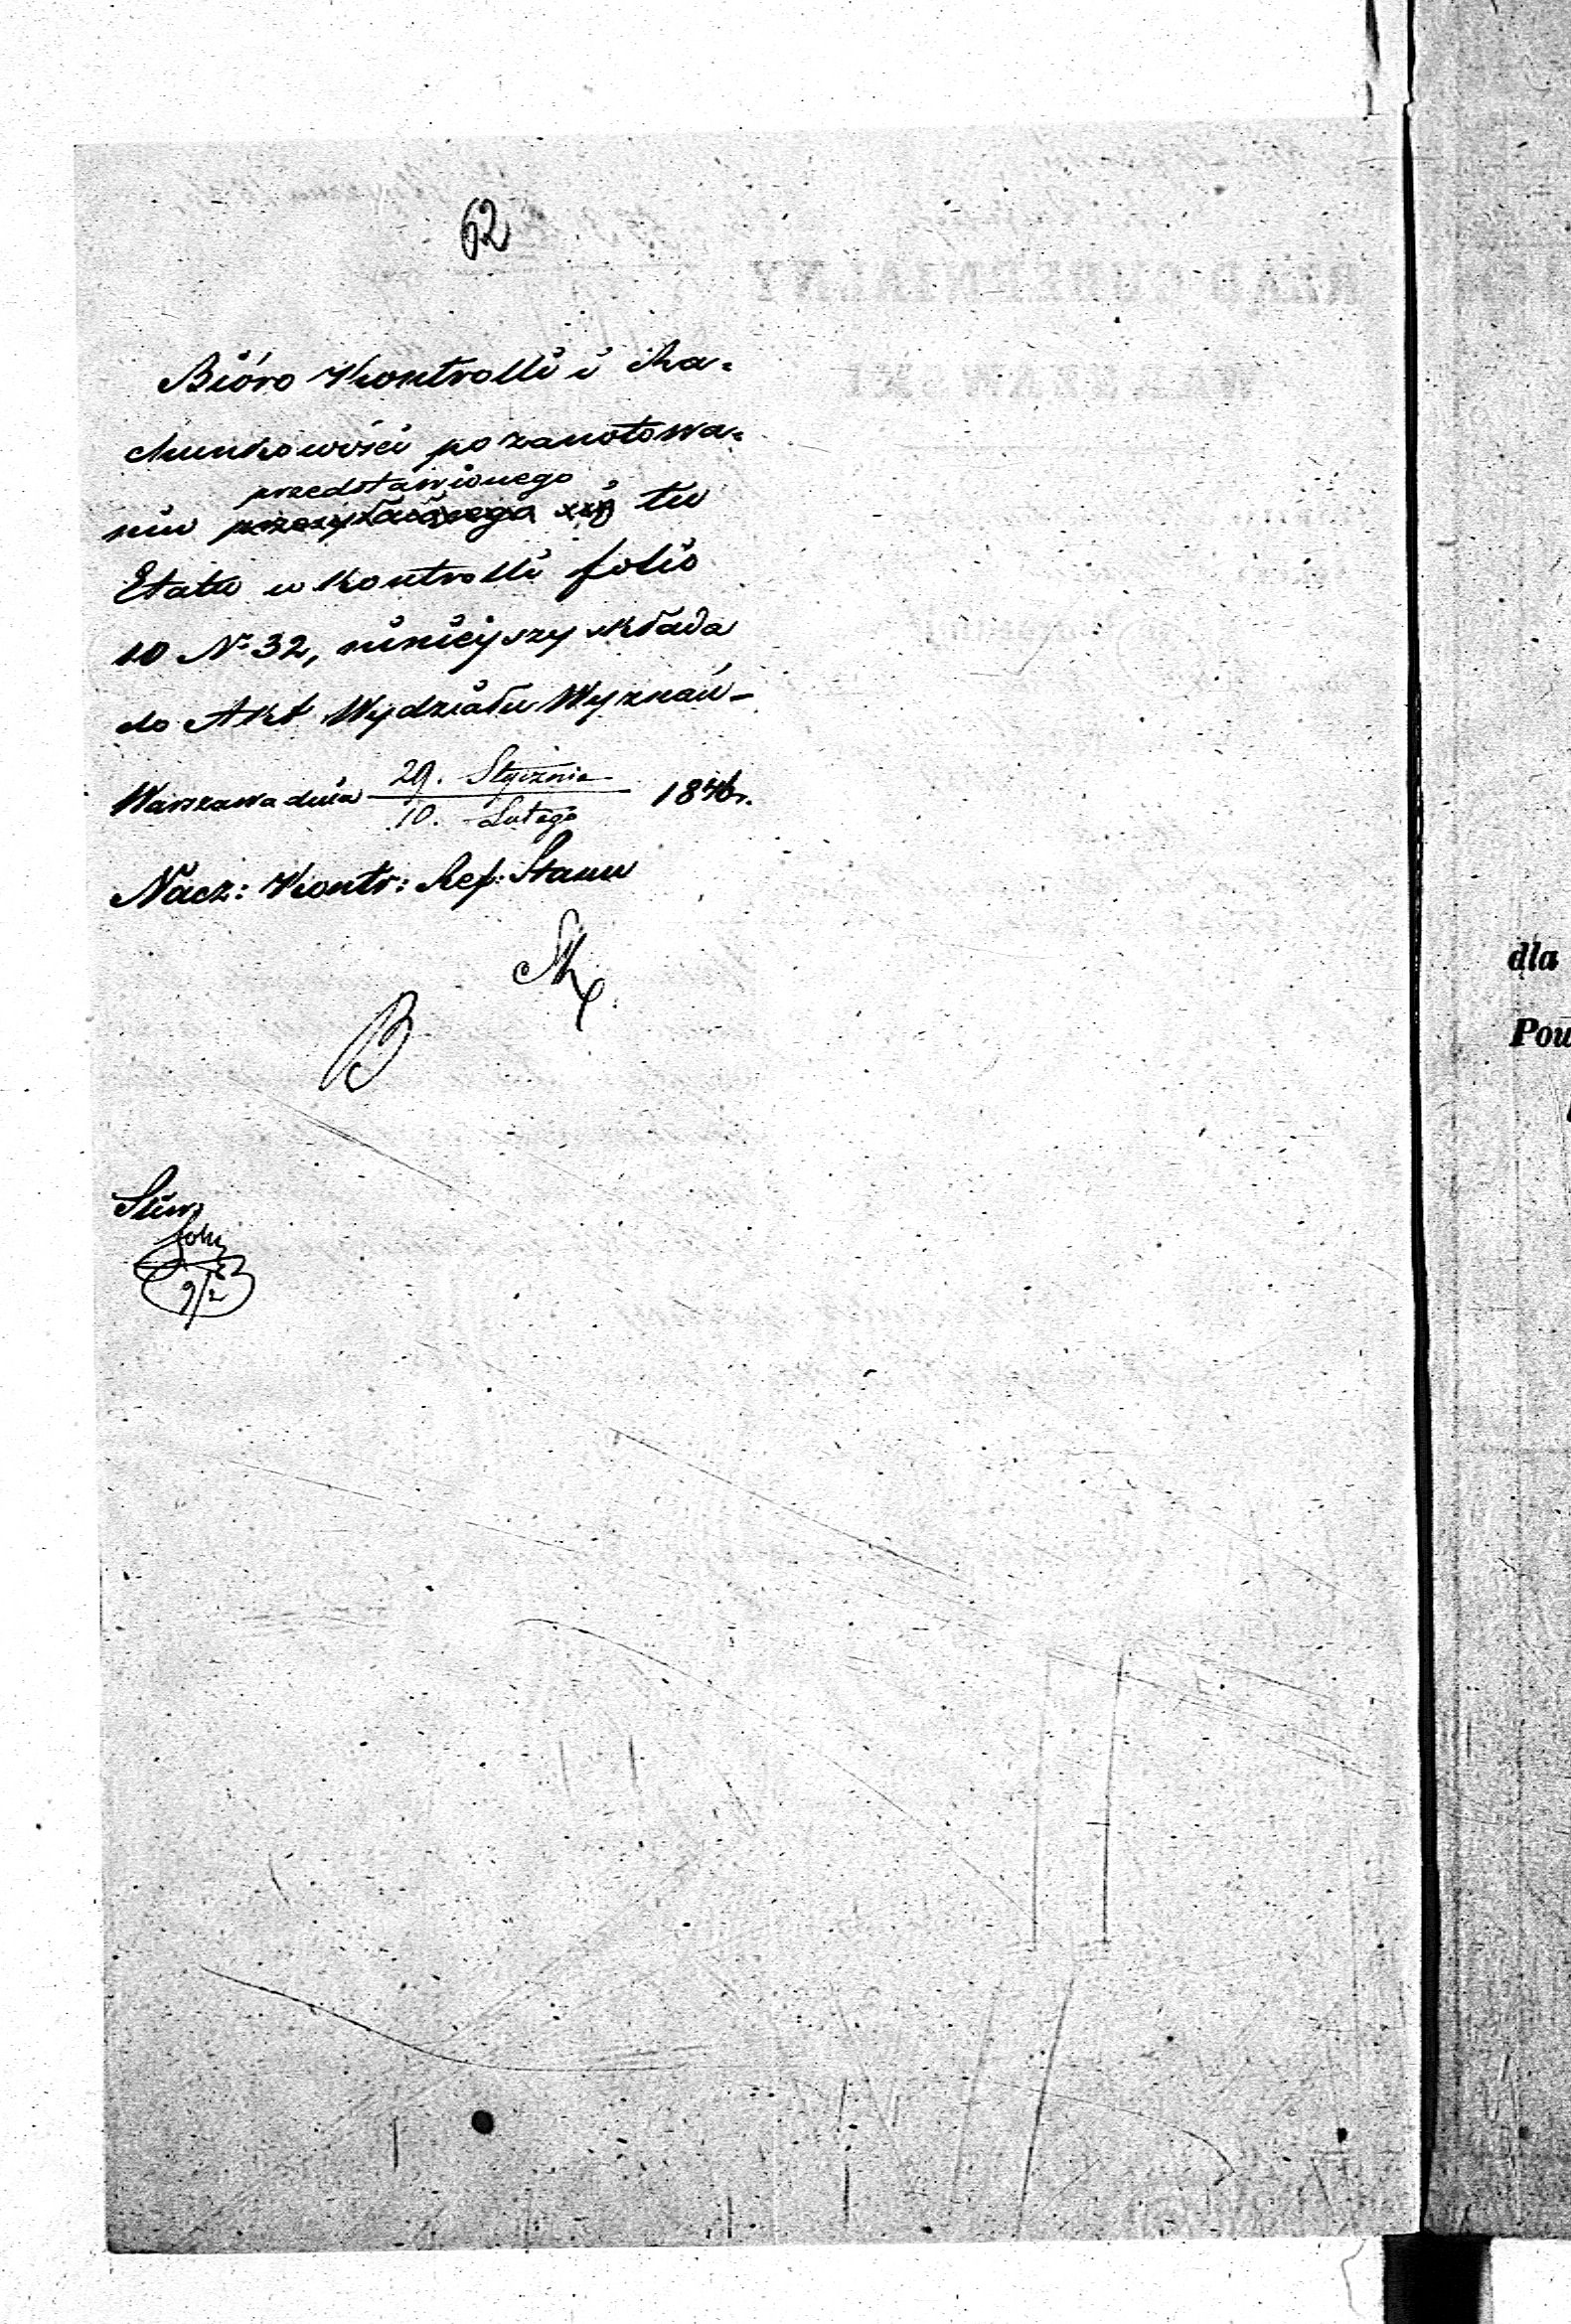 62
Bióro Kontrolli i Ra=
chunkowości po zanotowa=
przedstawionego
niu tu
Etatu w Kontrolli folio
10 № 32, niniejszy składa
do Akt Wydziału Wyznań –
Warszawa dnia 29. Stycznia / 10. Lutego 184 r.
Nacz: Kontr: Ref: Stanu
B
9/2
dla
Pow